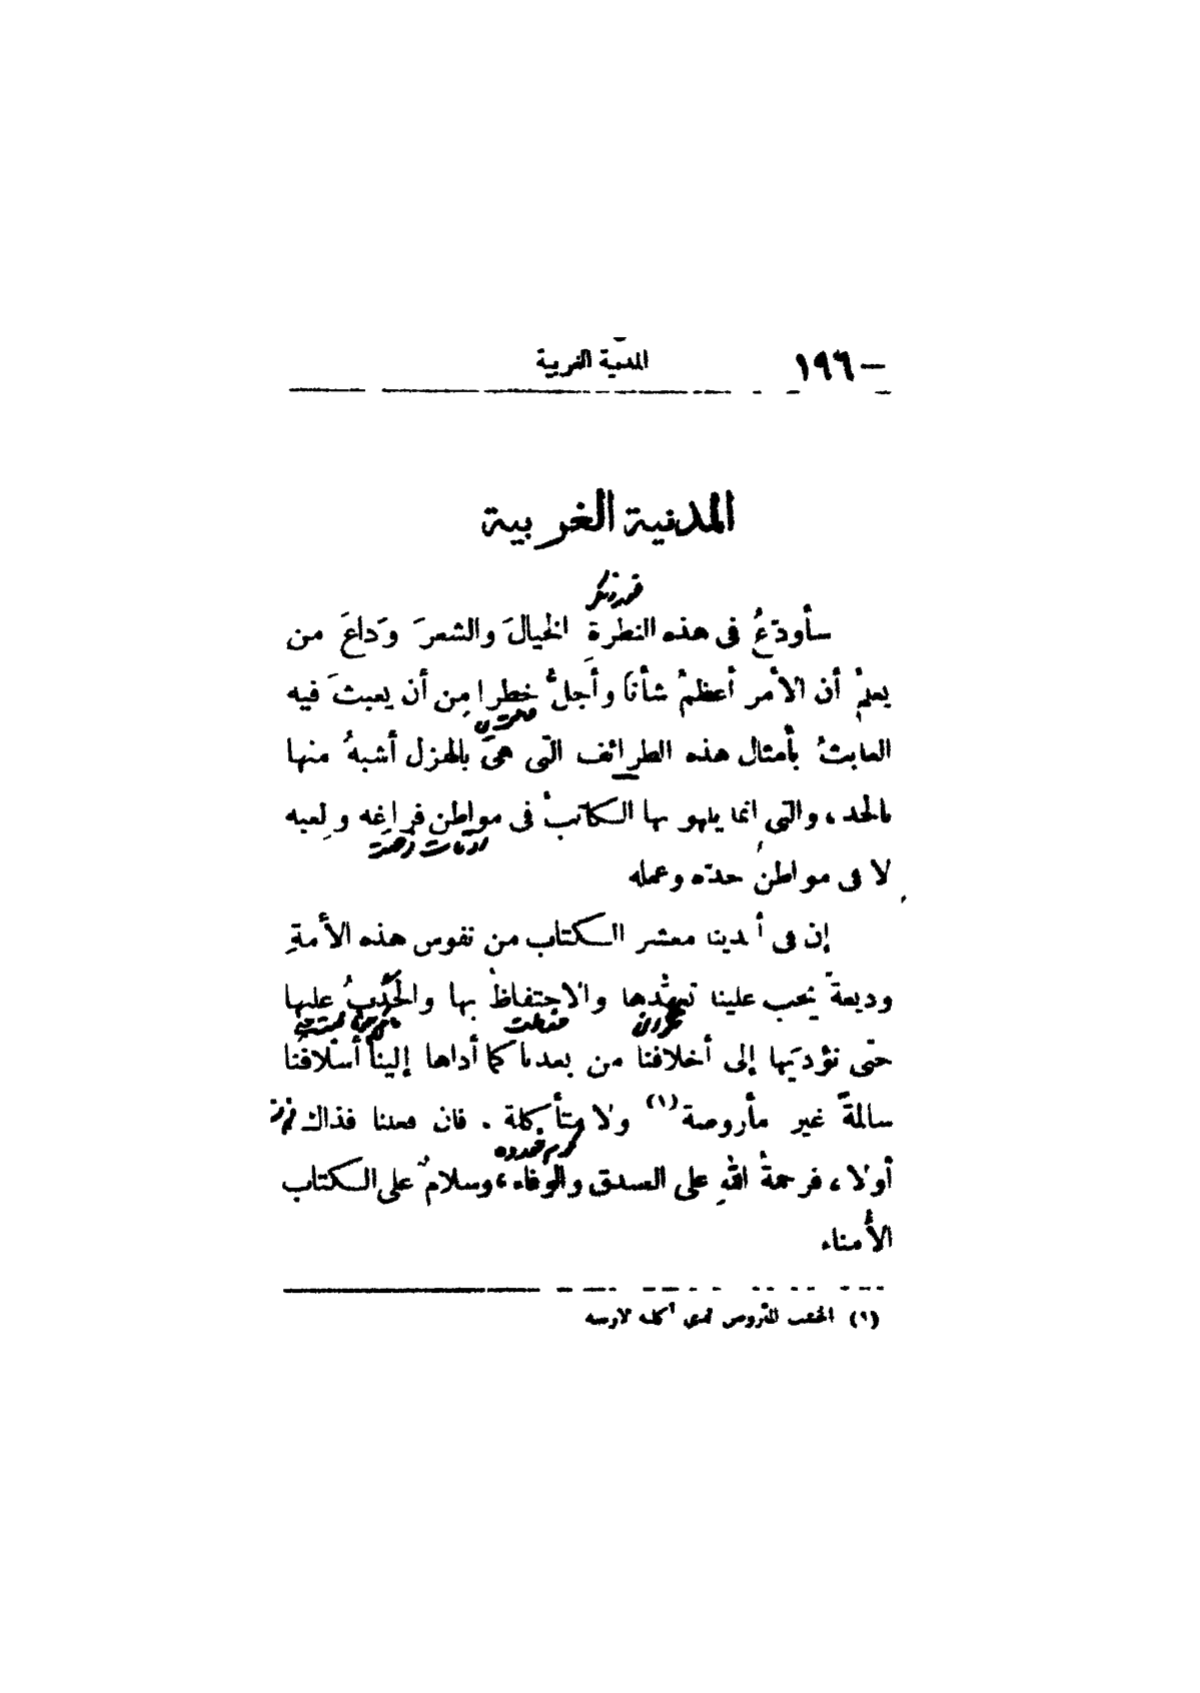 ١٩٦ — المدنية الغربية
المدنية الغربية
سأودّعُ فى هذه النظرةِ الخيالَ والشعرَ وَداعَ من
يعلمُ أن الأمر أعظمُ شأناً وأجلُّ خطرا مِن أن يعبثَ فيه
العابثُ بأمثال هذه الطرائف التى هى بالهزل أشبهُ منها
بالجد، والتى إنما يلهو بها الكاتبُ فى مواطن فراغِه ولعبه
لا فى مواطن جدّه وعمله
إن فى أيدينا معشر الكتاب من نفوس هذه الأمةِ
وديعةً يجب علينا تعهُّدها والاحتفاظُ بها والحَدَبُ عليها
حتى نؤديَها إلى أخلافنا من بعدنا كما أداها إلينا أسلافُنا
سالمةً غير مأروضة (١) ولا متأكلة . فان فعلنا فذاك
أولا، فرحمةُ اللهِ على الصدق والوفاء، وسلامٌ على الكتاب
الأُمناء
(١) الخشب المأروض الذي أكلته الأرضه